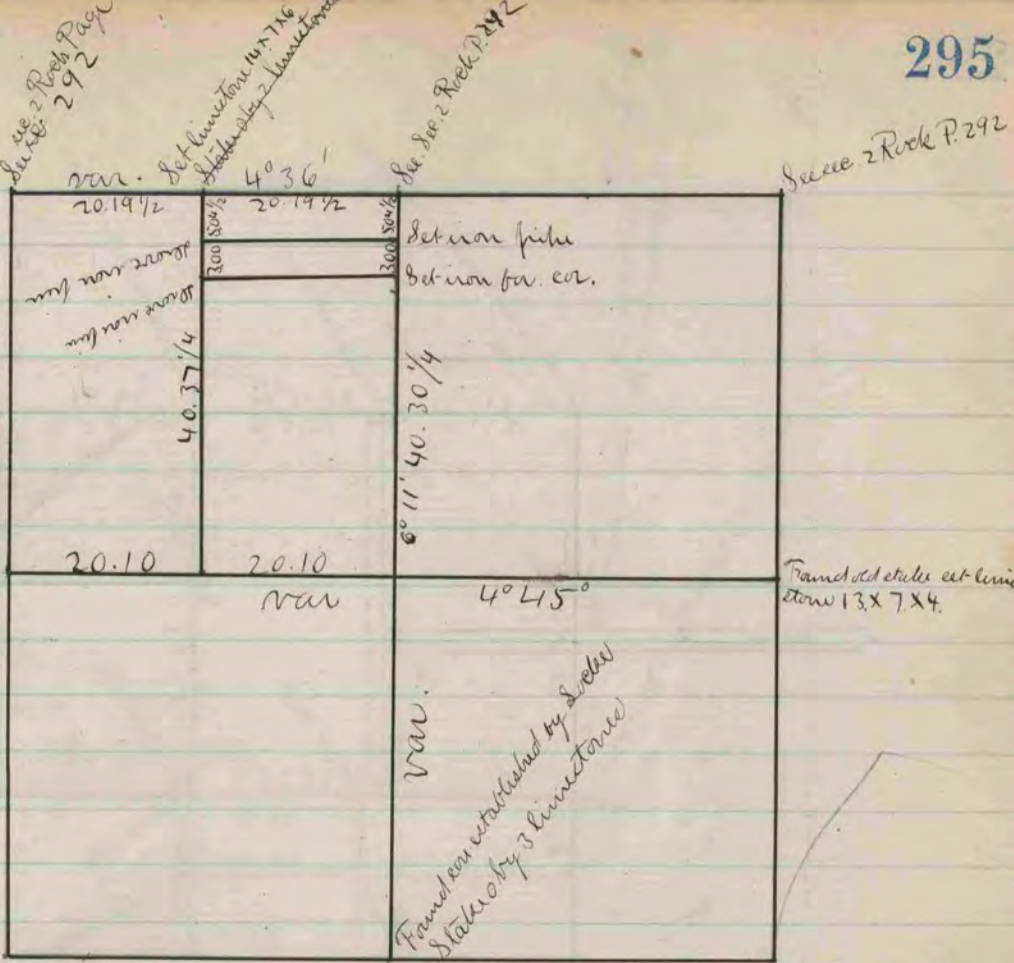 295
2 Rock Page
292
Set limestone 14 x 7 x 6
by 2 limestones
See Sec. 2 Rock P. 292
2 Rock P. 292
var. 4° 36'
20.19 1/2 20.19 1/2
5.04 1/2 5.04 1/2
3.00 3.00
Set iron
Set iron for cor.
drove iron
drove iron
40.37 1/4
6° 11' 40.30 1/4
20.10 20.10
var 4° 45°
Found old stake set lime
stone 13 x 7 x 4.
var.
Found cor. established by Locke
by 3 limestones